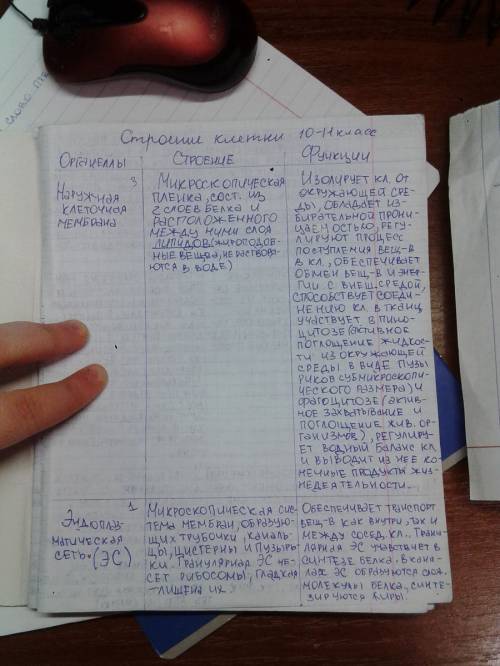 Строение клетки 10-11 класс
Органеллы
Строение
Функции
Наружная 3
клеточная
мембрана
Микроскопическая
пленка, сост. из
2 слоев белка и
расположенного
между ними слоя
липидов (жироподоб-
ные вещ-ва, не раство-
ряются в воде)
Изолирует кл. от
окружающей сре-
ды, обладает из-
бирательной прони-
цаемостью, регу-
лируют процесс
поступления вещ-в
в кл., обеспечивает
обмен вещ-в и энер-
гии с внеш. средой,
способствует соеди-
нению кл. в ткани,
участвует в пино-
цитозе (активное
поглощение жидкос-
ти из окружающей
среды в виде пузы
риков субмикроскопи-
ческого размера) и
фагоцитозе (актив-
ное захватывание и
поглощение жив. ор-
ганизмов), регулиру-
ет водный баланс кл
и выводит из нее ко-
нечные продукты жиз-
недеятельности.
Эндоплаз- 1
матическая
сеть. (ЭС)
Микроскопическая сис-
тема мембран, образую-
щих трубочки, каналь-
цы, цистерны и пузырь-
ки. Гранулярная ЭС не-
сет рибосомы, гладкая
-лишена их
Обеспечивает транспорт
вещ-в как внутри, так и
между сосед. кл. Грану-
лярная ЭС участвует в
синтезе белка. В кана-
лах ЭС образуются слож.
молекулы белка, синте-
зируются жиры.
слово